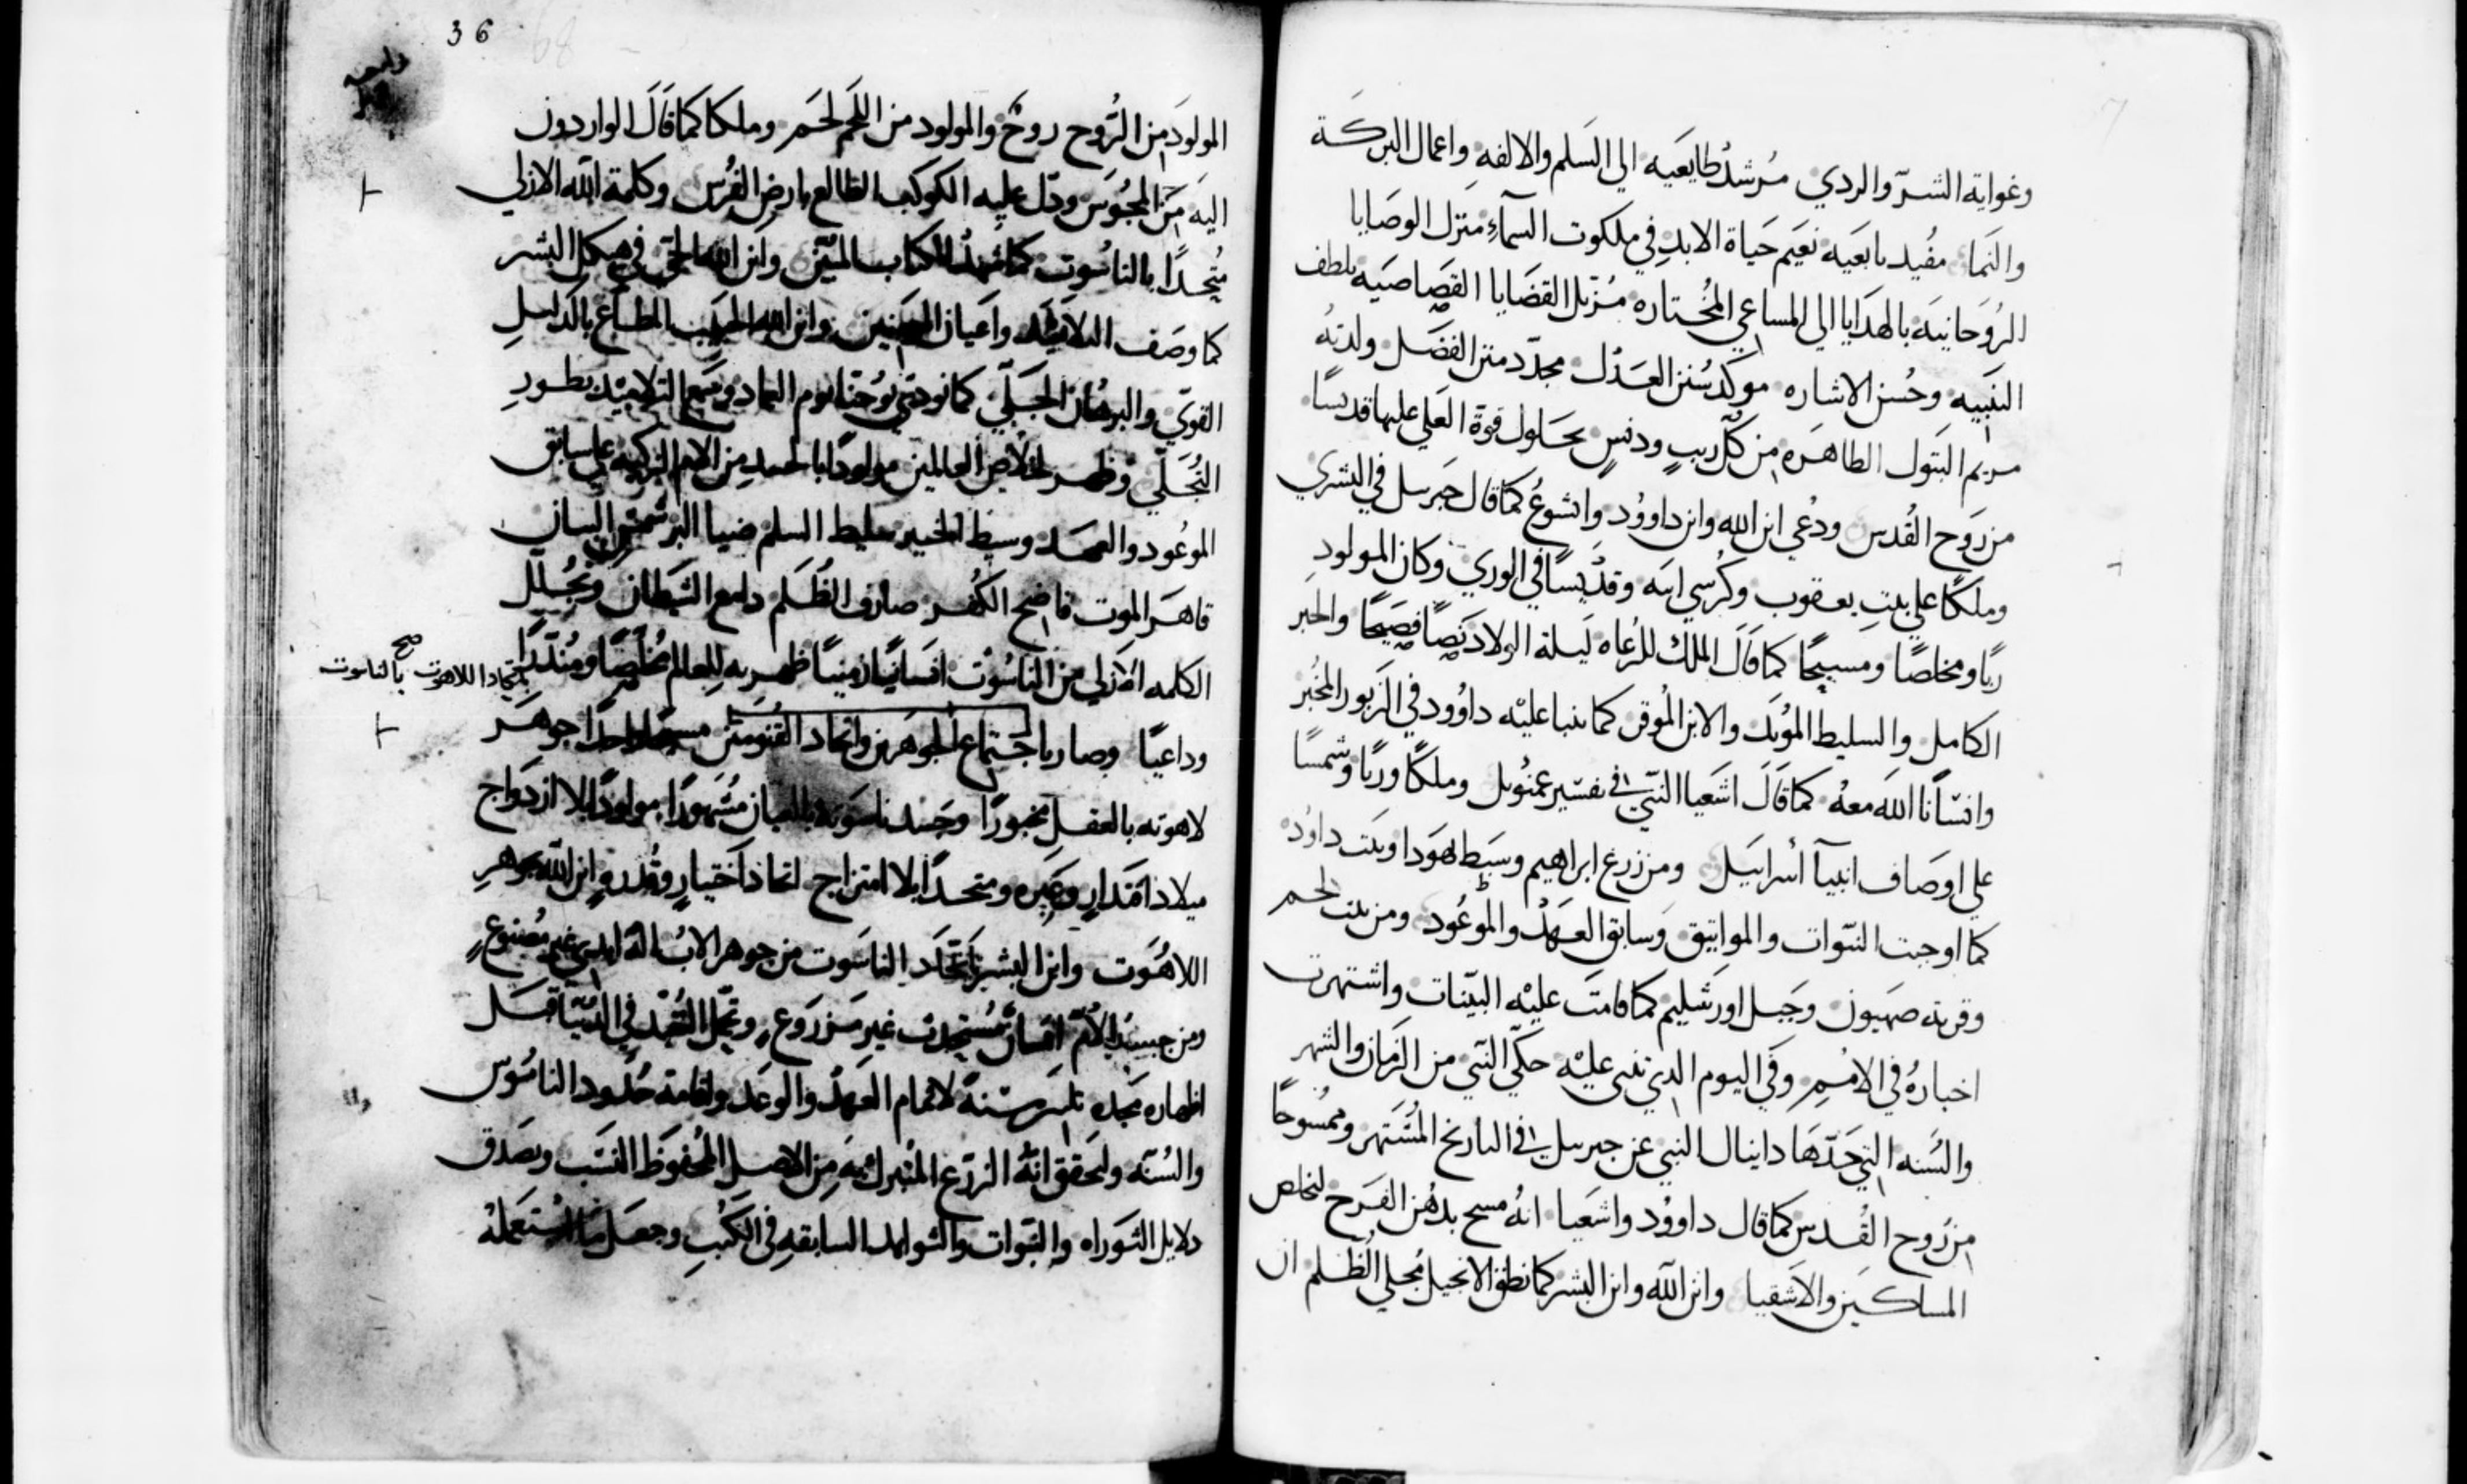 وغواية الشرّ والردي مُرشدُ طايعَيه الي السَلم والالفه واعمال البركة
والنَما مفُيد تابعَيه نعَيم حَياة الابدِ في ملكوت السمآءِ منَزل الوصَايا
الرُوحَانيَه بالهدَايا الي المساعي المخُتاره مُزيل القضَايا القصَاصَيه بلطف
النَبيه وحُسن الاشاره موكدسُنن العَدْل مجدّد منن الفضَل ولدتهُ
مريم البَتول الطاهَره من كُلّ ريبٍ ودنسٍ بحَلول قوة العَلي عليها قدسًا
من رَوح القُدس ودُعي ابن الله وابن داووُد وايشوعُ كمَا قال جَبرييل في البشري
وملكًا علي بيَتِ يعقوب وكُرسي ابيَه وقدّيسًا في الوري وكان المولودِ
ربًا ومخلصًا ومسيحًا كما قَالَ الملكُ للرُعاه لَيلة الولاد نَصًا فصَيحًا والحَبر
الكامل والسليط الموُيَد والابن الموُقر كما تنبا عليْه داوُود في الزَبور المخُبر
وانسَانًا اللهَ معهُ كما قَالَ اشَعيا النبّي في تفسَير عمنُويل وملكًا وربًا وشمسًا
علي اوصَاف انبيآ أسراييَل ومن زرع ابراهيم وسَبط يهَودا وبيَت داوُد
كما اوجبت النبّوات والمواثيق وسَابق العَهدْ والموعُود ومن بيت لحم
وقرية صهيون وجَبل اورشَليم كما قامتَ عليْه البيّنات واشتهرت
اخبارهُ في الامُمِ وفَي اليوم الذي تنبي عليْه حجّي النبّي من الزَمان والشهر
والسَنه التي حَدّهَا دانيال النبي عن جبرييل في التاريخ المشُتهر وممسُوحًا
من رَوح القُدسَ كما قال داووُد واشعَيا انهُ مسح بدهُن الفَرح لخلاص
المساكين والاشَقيا وابن اللهَ وابن البشر كما نطق الانجيل مُجلي الظُلم ان
36
المولودَ من الرُّوح روحٌ والمولود من اللحَم لحَم وملكا كمَا قَالَ الواردون
اليَه مَن المجُوسَ ودَل عليه الكوكب الطالع بارض الفُرس وكلمة الله الازلي
مُتحدًا بالناسُوت كما شهدُ الكتاب المبُين وابن الله الحَيّ في هيكل البشر
كما وصَف التلاميَذ واعَيان وابن الله الحبَيب المطاع بالدَليل
القوّي والبرهُان الجَلّي كما نودي يوُحنا يوم العماد وسَمَع التلاميَذ بطور
التُجَلّي وظهر لخلاص العالمين مولودًا بالجسد من الام الزكيه علي سابق
الموعُود والعهَد وسيط الخير سليط السلم
قاهَر الموت فاضح الكُفر صارف الظُلَم دامع الشَيطان
الكلمه الازلي من الناسُوت انسَانيًا زمنيًا ظهر به للعالم مخُلصًا ومنُذرًا
صح باتحاد اللاهوت بالناسوت
وداعيًا وصار باجتماع الجوهَرين واتحاد القُنومَيَن مسيحًا واحدًا جوهَر
لاهوته بالعقل مخبورًا وجَسد ناسَوته بالعيان مشُهودًا مولودًا بلا ازدَواج
ميلاد اقتَدارٍ وعَبِره ومتحدًا بلا امتزاج اتحاد اختيارٍ وقُدرهٍ ابن اللهَ جوهرِ
اللاهُوَت وابن البشر باتحَاد الناسَوت من جوهر الابُ الهَ ابدي غير مصُنوعٍ
ومن جسد الاُمّ انسَان مسُتحدث غير مَزروَعٍ في الدنيّا قبَل
اظهاره مَجده ثلثين سَنهً لاتمام العَهدْ والوعَد واقامة حُدود الناموُس
والسُنّه وليَحقق انهُ الزرَع المتُبرك به من الاصل المحُفوظ النسَب ويصَدق
دلايل التَوراه والنبَوات والشواهد السَابقهِ في الكتُبِ وجعَل مَا استعَملهُ